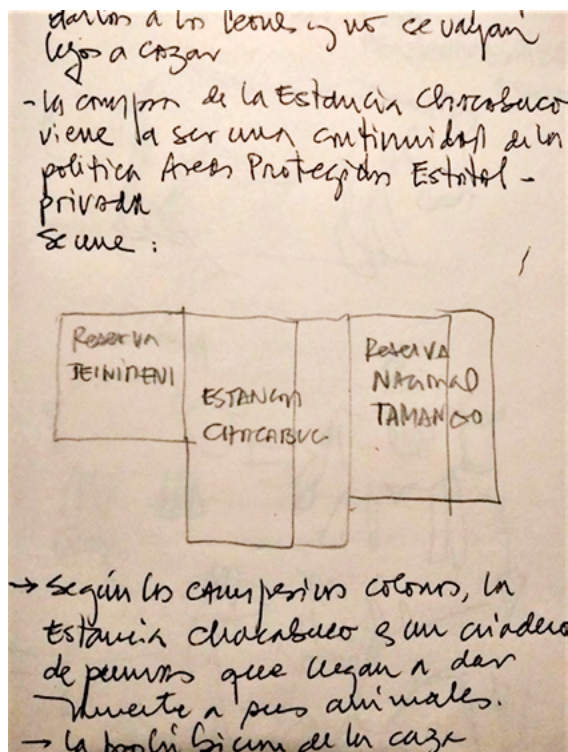 darlos a los leones y no se vayan
lejos a cazar
- la compra de la Estancia Chacabuco
viene a ser una continuidad de la
política Areas Protegidas Estatal -
privada
Se une :
Reserva
JEINIMENI
ESTANCIA
CHACABUC
RESERVA
NACIONAL
TAMANGO
→ Según los campesinos colonos, la
Estancia Chacabuco es un criadero
de pumas que llegan a dar
muerte a sus animales.
→ la prohibición de la caza